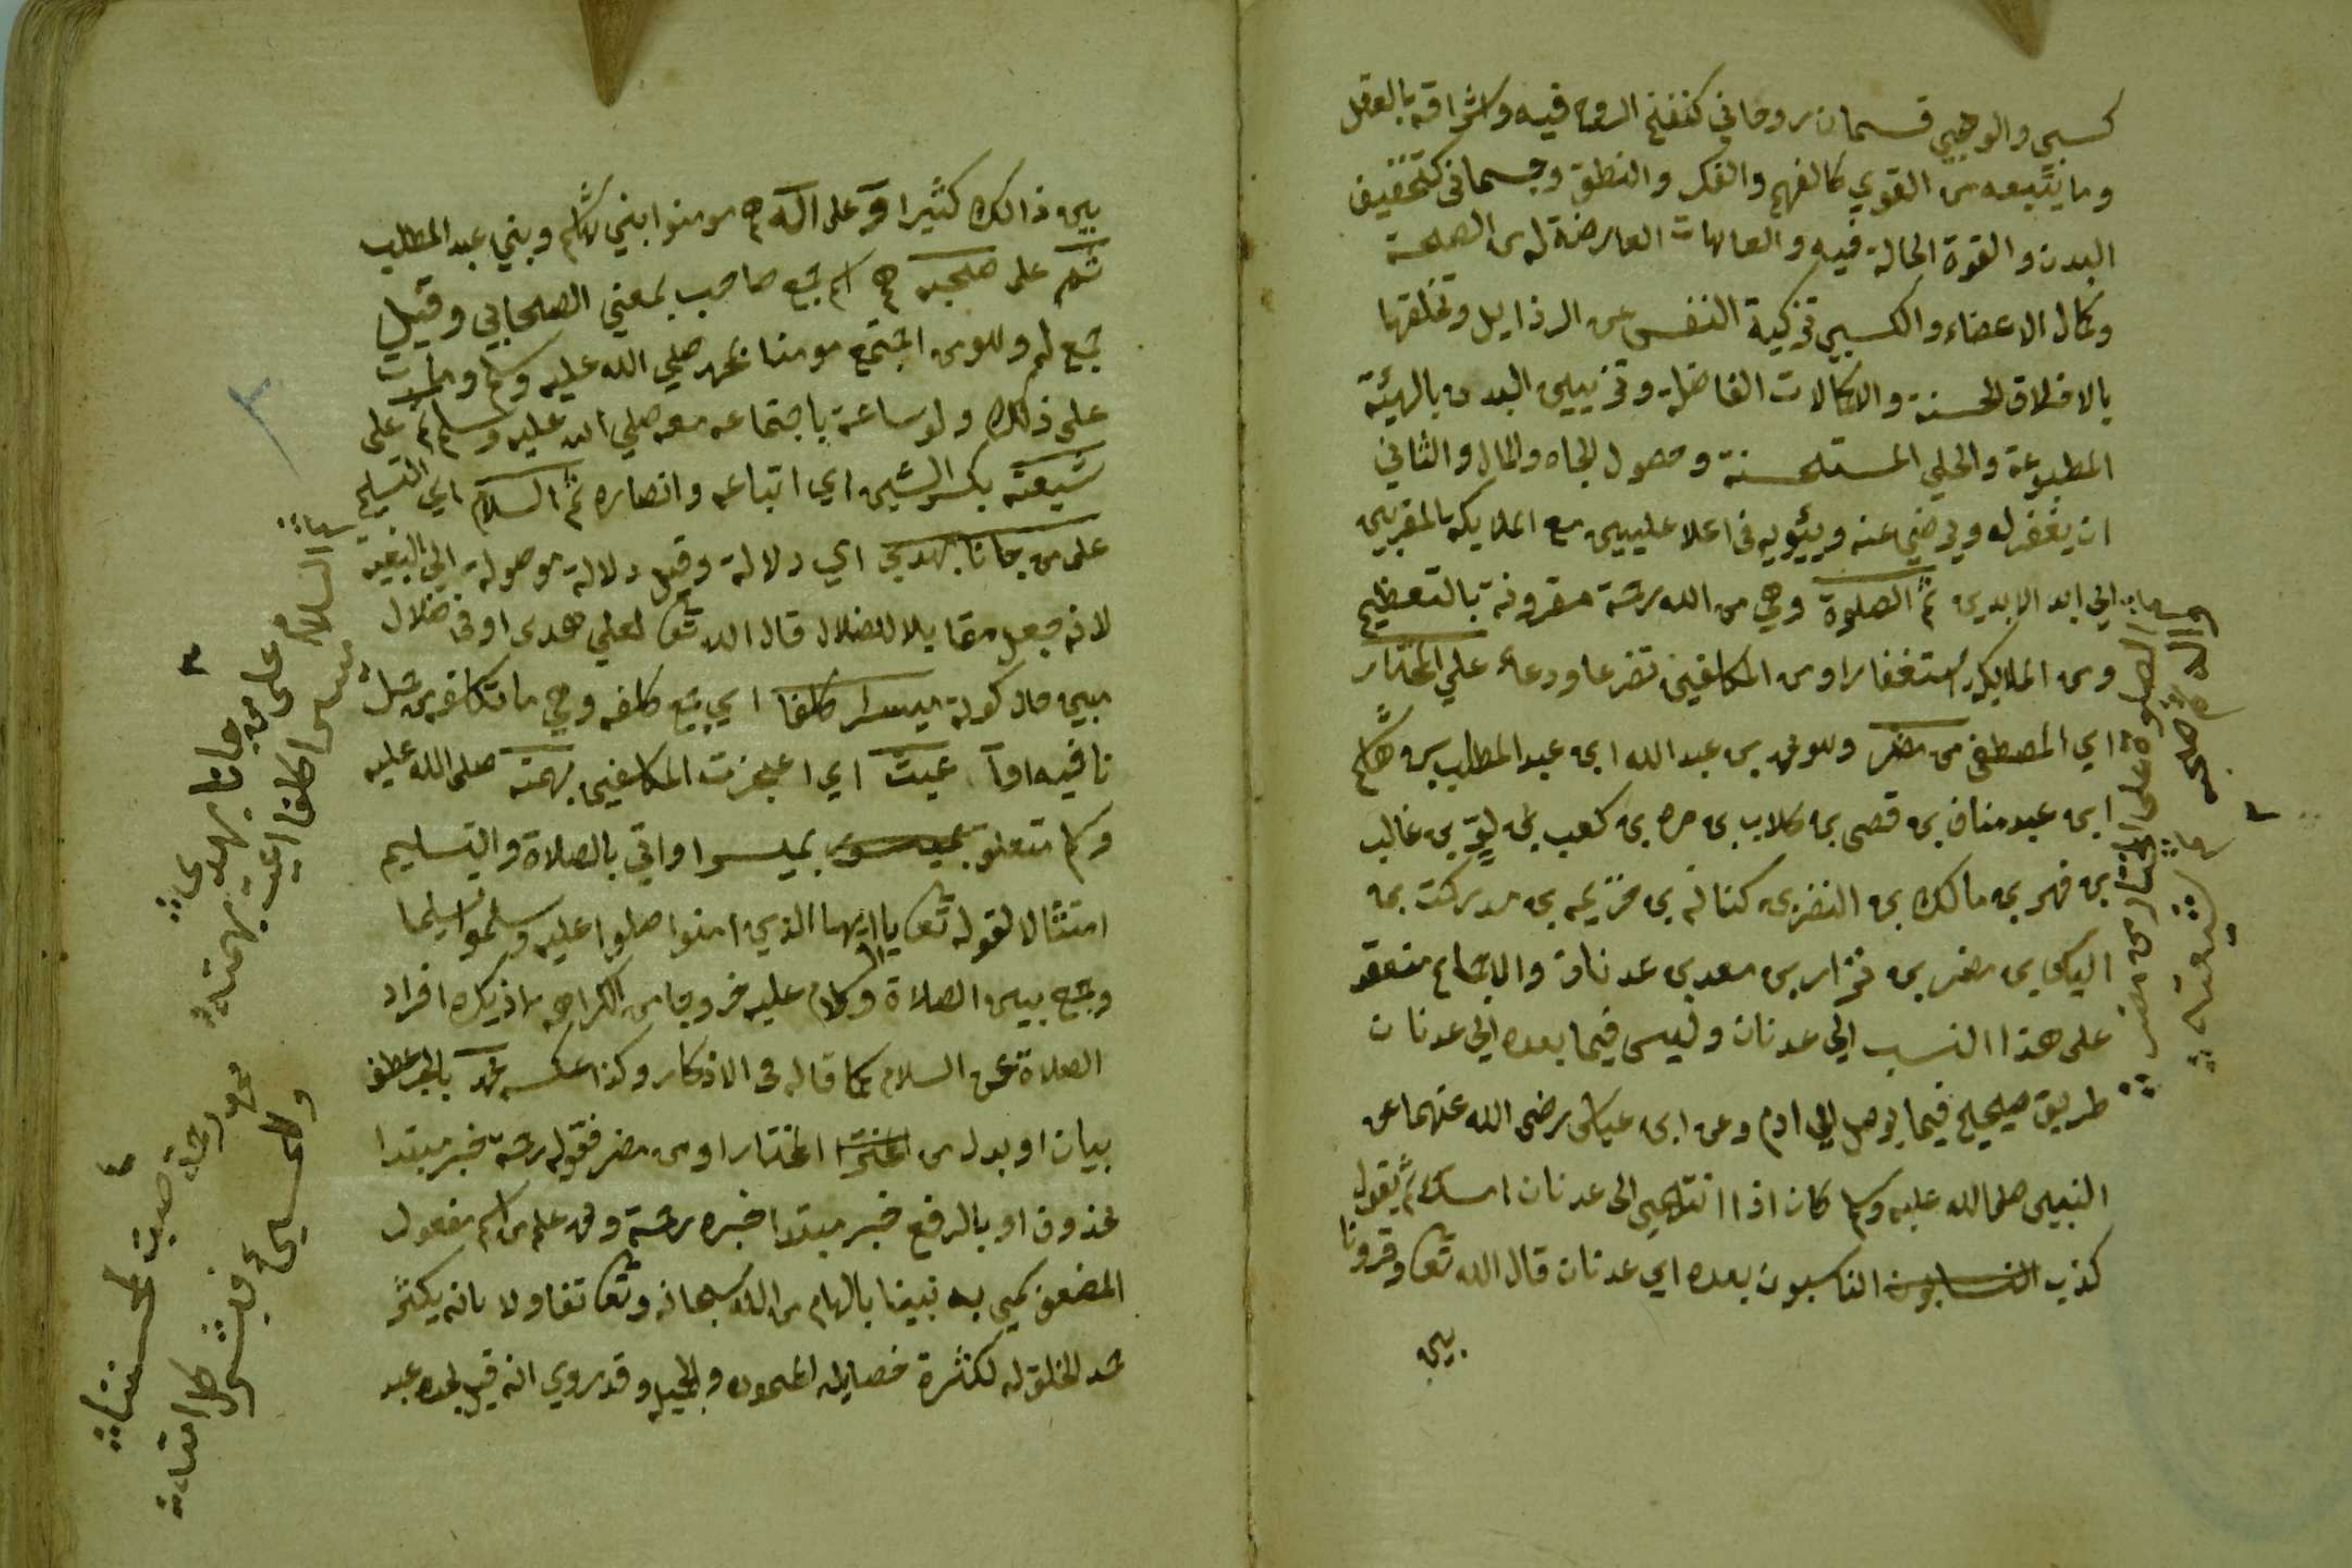 كسبي والوهبي قسمان روحاني كنفخ الروح فيه واشراقه بالعقل
وما يتبعه من القوي كالفهم والفكر والنطق وجسماني كتخفيف
البدن والقوة الحالة فيه والعاهات العارضة له من الصحة
وكمال الاعضاء والكسبي تزكية النفس عن الرذايل وتخلقها
بالاخلاق الحسنة والكمالات الفاضلة وتزيين البدن بالهيئة
المطبوعة والحلي المستحسنة وحصول الجاه والمال والثاني
ان يغفر له ويرضي عنه ويبئويه في اعلا عليين مع الملايكه المقربين
الي ابد الابدين ثم الصلوة وهي من الله رحمة مقرونة بالتعظيم
ومن الملايكه استغفارا ومن المكلفين تضرعا ودعاء علي المختار
اي المصطفى من مضر وهو محمد بن عبد الله ابن عبد المطلب بن هاشم
ابن عبد مناف بن قصى بن كلاب بن مره بن كعب بن لوي بن غالب
بن فهر بن مالك بن النضر بن كنانه بن خزيمه بن مدركت بن
الياس بن مضر بن نزار بن معد بن عدنان والاجماع منعقد
على هذا النسب الي عدنان وليس فيما بعده الي عدنان
طريق صحيح فيما يوصل الي ادم وعن ابن عباس رضى الله عنهما عن
النبيى صلى الله عليه وسلم كان اذا انتهي الى عدنان امسك ثم يقول
كذب النسابون الناسبون بعده اي عدنان قال الله تع وقرونا
بين
الصلوة على المختار من مضر
واله ثم صحبه
ثم شيعته
٢
بين ذالك كثيرا وعلى اله هم مومنوا بني هاشم وبني عبد المطلب
ثم على صحبه هم اسم جمع صاحب بمعني الصحابي وقيل
جمع له وهو من اجتمع مومنا بمحمد صلي الله عليه وسلم ومات
على ذلك ولو ساعة باجتماعه معه صلي الله عليه وسلم ثم على
شيعته بكسر الشين اي اتباعه وانصاره ثم السلام اي التسليم
على من جانا بهدي اي دلالة وقيل دلالة موصولة الي البغية
لانه جعل مقابلا للضلال قال الله تع لعلي هدى او في ضلال
مبين حال كونه ميسرا كلفا اي جمع كلفه وهي ما تكلفه من مثل
نافيه او اعيت اي اعجزت المكلفين بهمته صلى الله عليه
وسلم متعلق بميسر بميسرا واتي بالصلاة والتسليم
امتثالا لقوله تع ياايها الذين امنوا صلوا عليه وسلموا تسليما
وجمع بين الصلاة والسلام عليه خروجا من الكراهه اذ يكره افراد
الصلاة عن السلام كما قاله في الاذكار وكذا عكسه محمد بالجر عطف
بيان او بدل من المختار او من مضر فقوله رحمة خبر مبتدا
محذوف او بالرفع خبر مبتدا خبره رحمة ومحمد علم من اسم مفعول
المضعف سمي به نبينا بالهام من الله سبحانه وتع تفاولا بانه يكثر
حمد الخلق له لكثرة خصايله المحموده والجميله وقد روي انه قيل لجده عبد
ثم السلام على من جانا بهدي
ميسرا كلفا اعيت بهمته
٣
محمد رحمة
٤